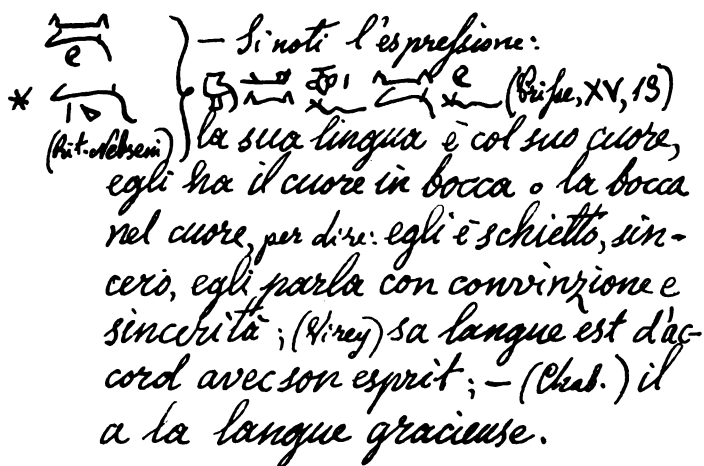 — Si noti l'espressione:
* (Prisse, XV, 13)
(Rit. Nebseni) la sua lingua è col suo cuore,
egli ha il cuore in bocca o la bocca
nel cuore, per dire: egli è schietto, sin-
cero, egli parla con convinzione e
sincerità; (Virey) sa langue est d'ac-
cord avec son esprit; — (Chab.) il
a la langue gracieuse.